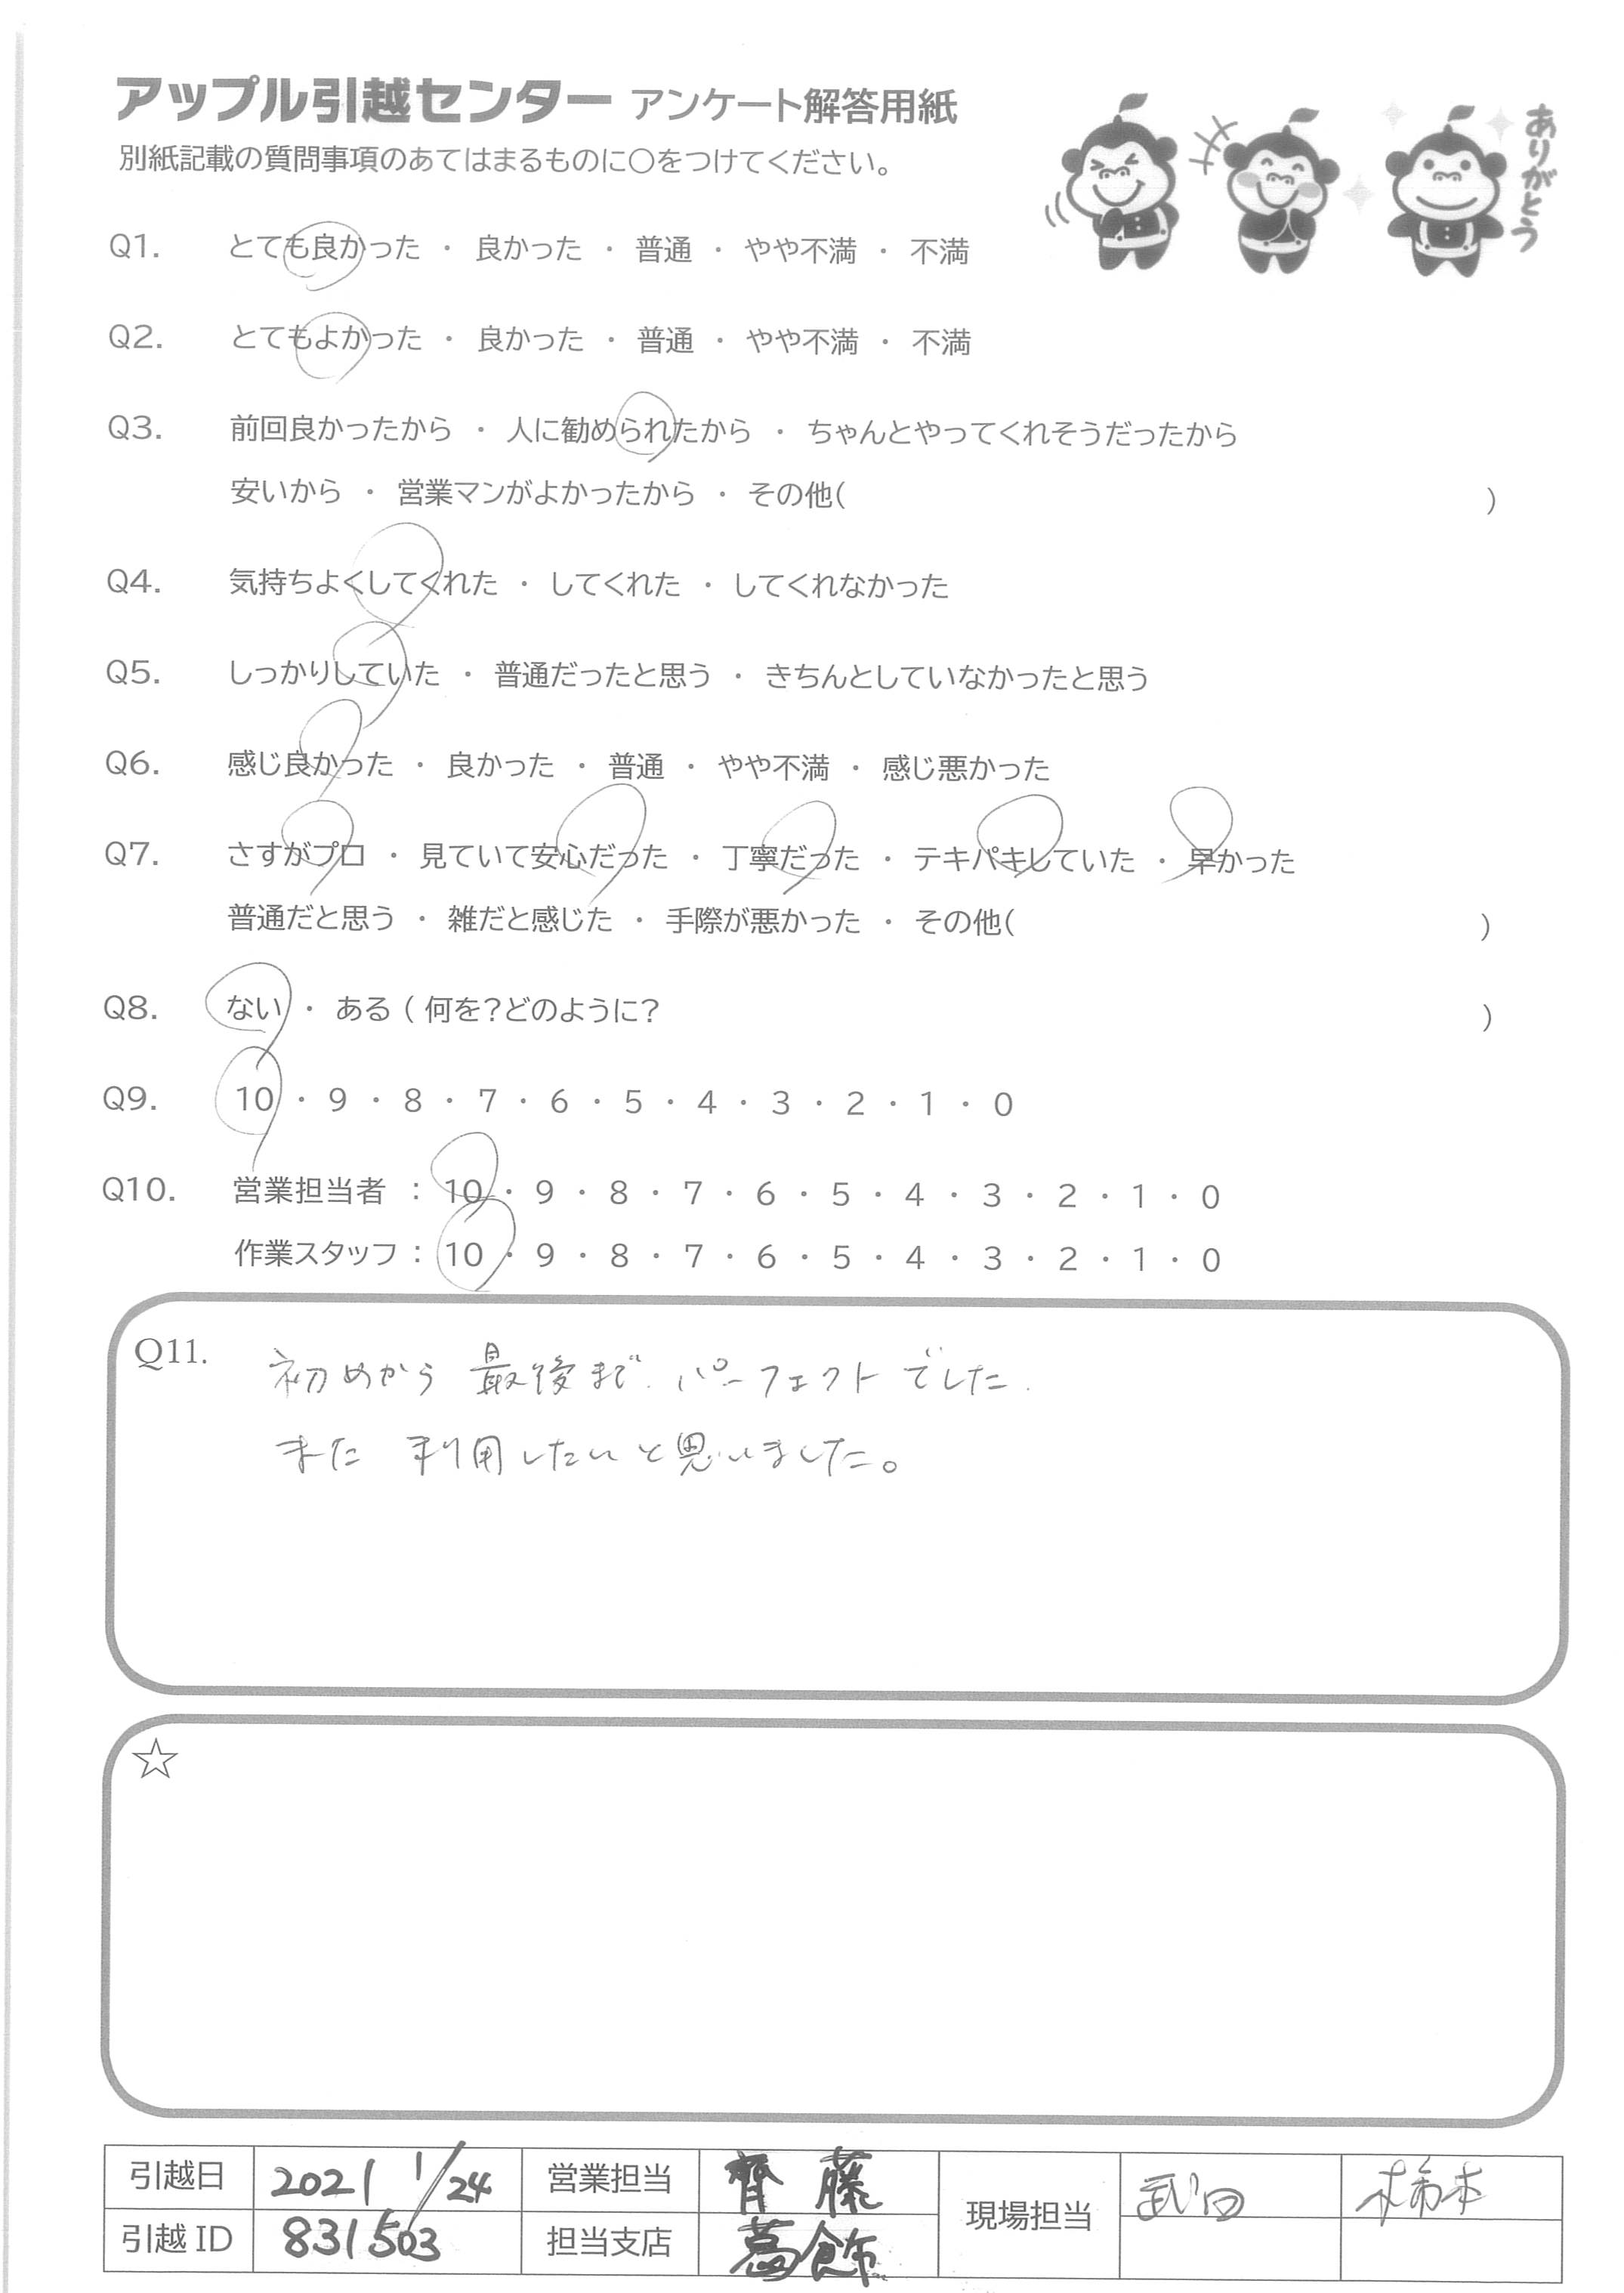 アップル引越センター アンケート解答用紙
別紙記載の質問事項のあてはまるものに○をつけてください。
ありがとう
Q1. とても良かった ・ 良かった ・ 普通 ・ やや不満 ・ 不満
Q2. とてもよかった ・ 良かった ・ 普通 ・ やや不満 ・ 不満
Q3. 前回良かったから ・ 人に勧められたから ・ ちゃんとやってくれそうだったから
安いから ・ 営業マンがよかったから ・ その他( )
Q4. 気持ちよくしてくれた ・ してくれた ・ してくれなかった
Q5. しっかりしていた ・ 普通だったと思う ・ きちんとしていなかったと思う
Q6. 感じ良かった ・ 良かった ・ 普通 ・ やや不満 ・ 感じ悪かった
Q7. さすがプロ ・ 見ていて安心だった ・ 丁寧だった ・ テキパキしていた ・ 早かった
普通だと思う ・ 雑だと感じた ・ 手際が悪かった ・ その他( )
Q8. ない ・ ある ( 何を?どのように? )
Q9. 10 ・ 9 ・ 8 ・ 7 ・ 6 ・ 5 ・ 4 ・ 3 ・ 2 ・ 1 ・ 0
Q10. 営業担当者 : 10 ・ 9 ・ 8 ・ 7 ・ 6 ・ 5 ・ 4 ・ 3 ・ 2 ・ 1 ・ 0
作業スタッフ : 10 ・ 9 ・ 8 ・ 7 ・ 6 ・ 5 ・ 4 ・ 3 ・ 2 ・ 1 ・ 0
Q11. 初めから 最後まで パーフェクトでした.
また 利用したいと思いました。
☆
引越日 2021 1/24 営業担当 齊藤 現場担当 武田 柿本
引越ID 831503 担当支店 葛飾